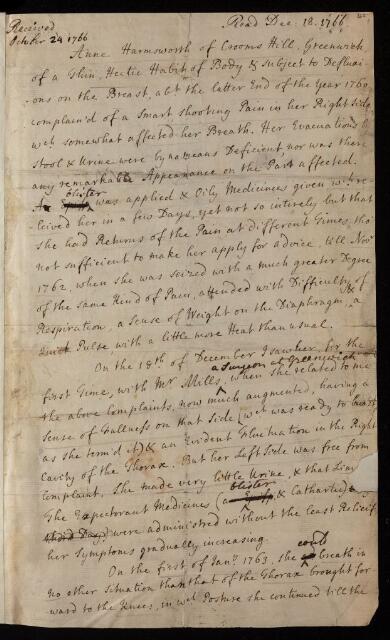 Received
October 24 1766
Read Dec. 18. 1766
Anne Harmsworth of Crooms Hill, Greenwich,
of a Thin, Hectic Habit of Body & Subject to Defluxi-
-ons on the Breast, abt the latter End of the Year 1760
complain'd of a Smart Shooting Pain in her Right Side
wch somewhat affected her Breath. Her Evacuations by
Stool & Urine were by no means Deficient nor was there
any remarkable Appearance on the Part affected.
A blister was applied & Oily Medicines given wch re-
leived her in a few Days, yet not so intirely but that
she had Returns of the Pain at different Times, tho
not sufficient to make her apply for advice, till Novr
1762, when she was seized with a much greater Degree
of the same Kind of Pain, attended with Difficulty of
Respiration, a Sense of Weight on the Diaphragm, & a
Quick Pulse with a little more Heat than usual.
On the 18th of December I saw her, for the
first Time, with Mr Mills, a Surgeon at Greenwich when she related to me
the above Complaints, now much augmented, having a
Sense of Fullness on that Side (wch was ready to burst
as she term'd it) & an Evident Fluctuation in the Right
Cavity of the Thorax. But her Left Side was free from
Complaint. She made very little Urine, & that
The Expectorant Medicines (a blister & Cathartics)
were administred without the least Relief
her Symptoms gradually increasing.
On the first of Janry 1763, she could breath in
no other Situation than that of the Thorax brought for-
ward to the Knees, in wch Posture she continued till the